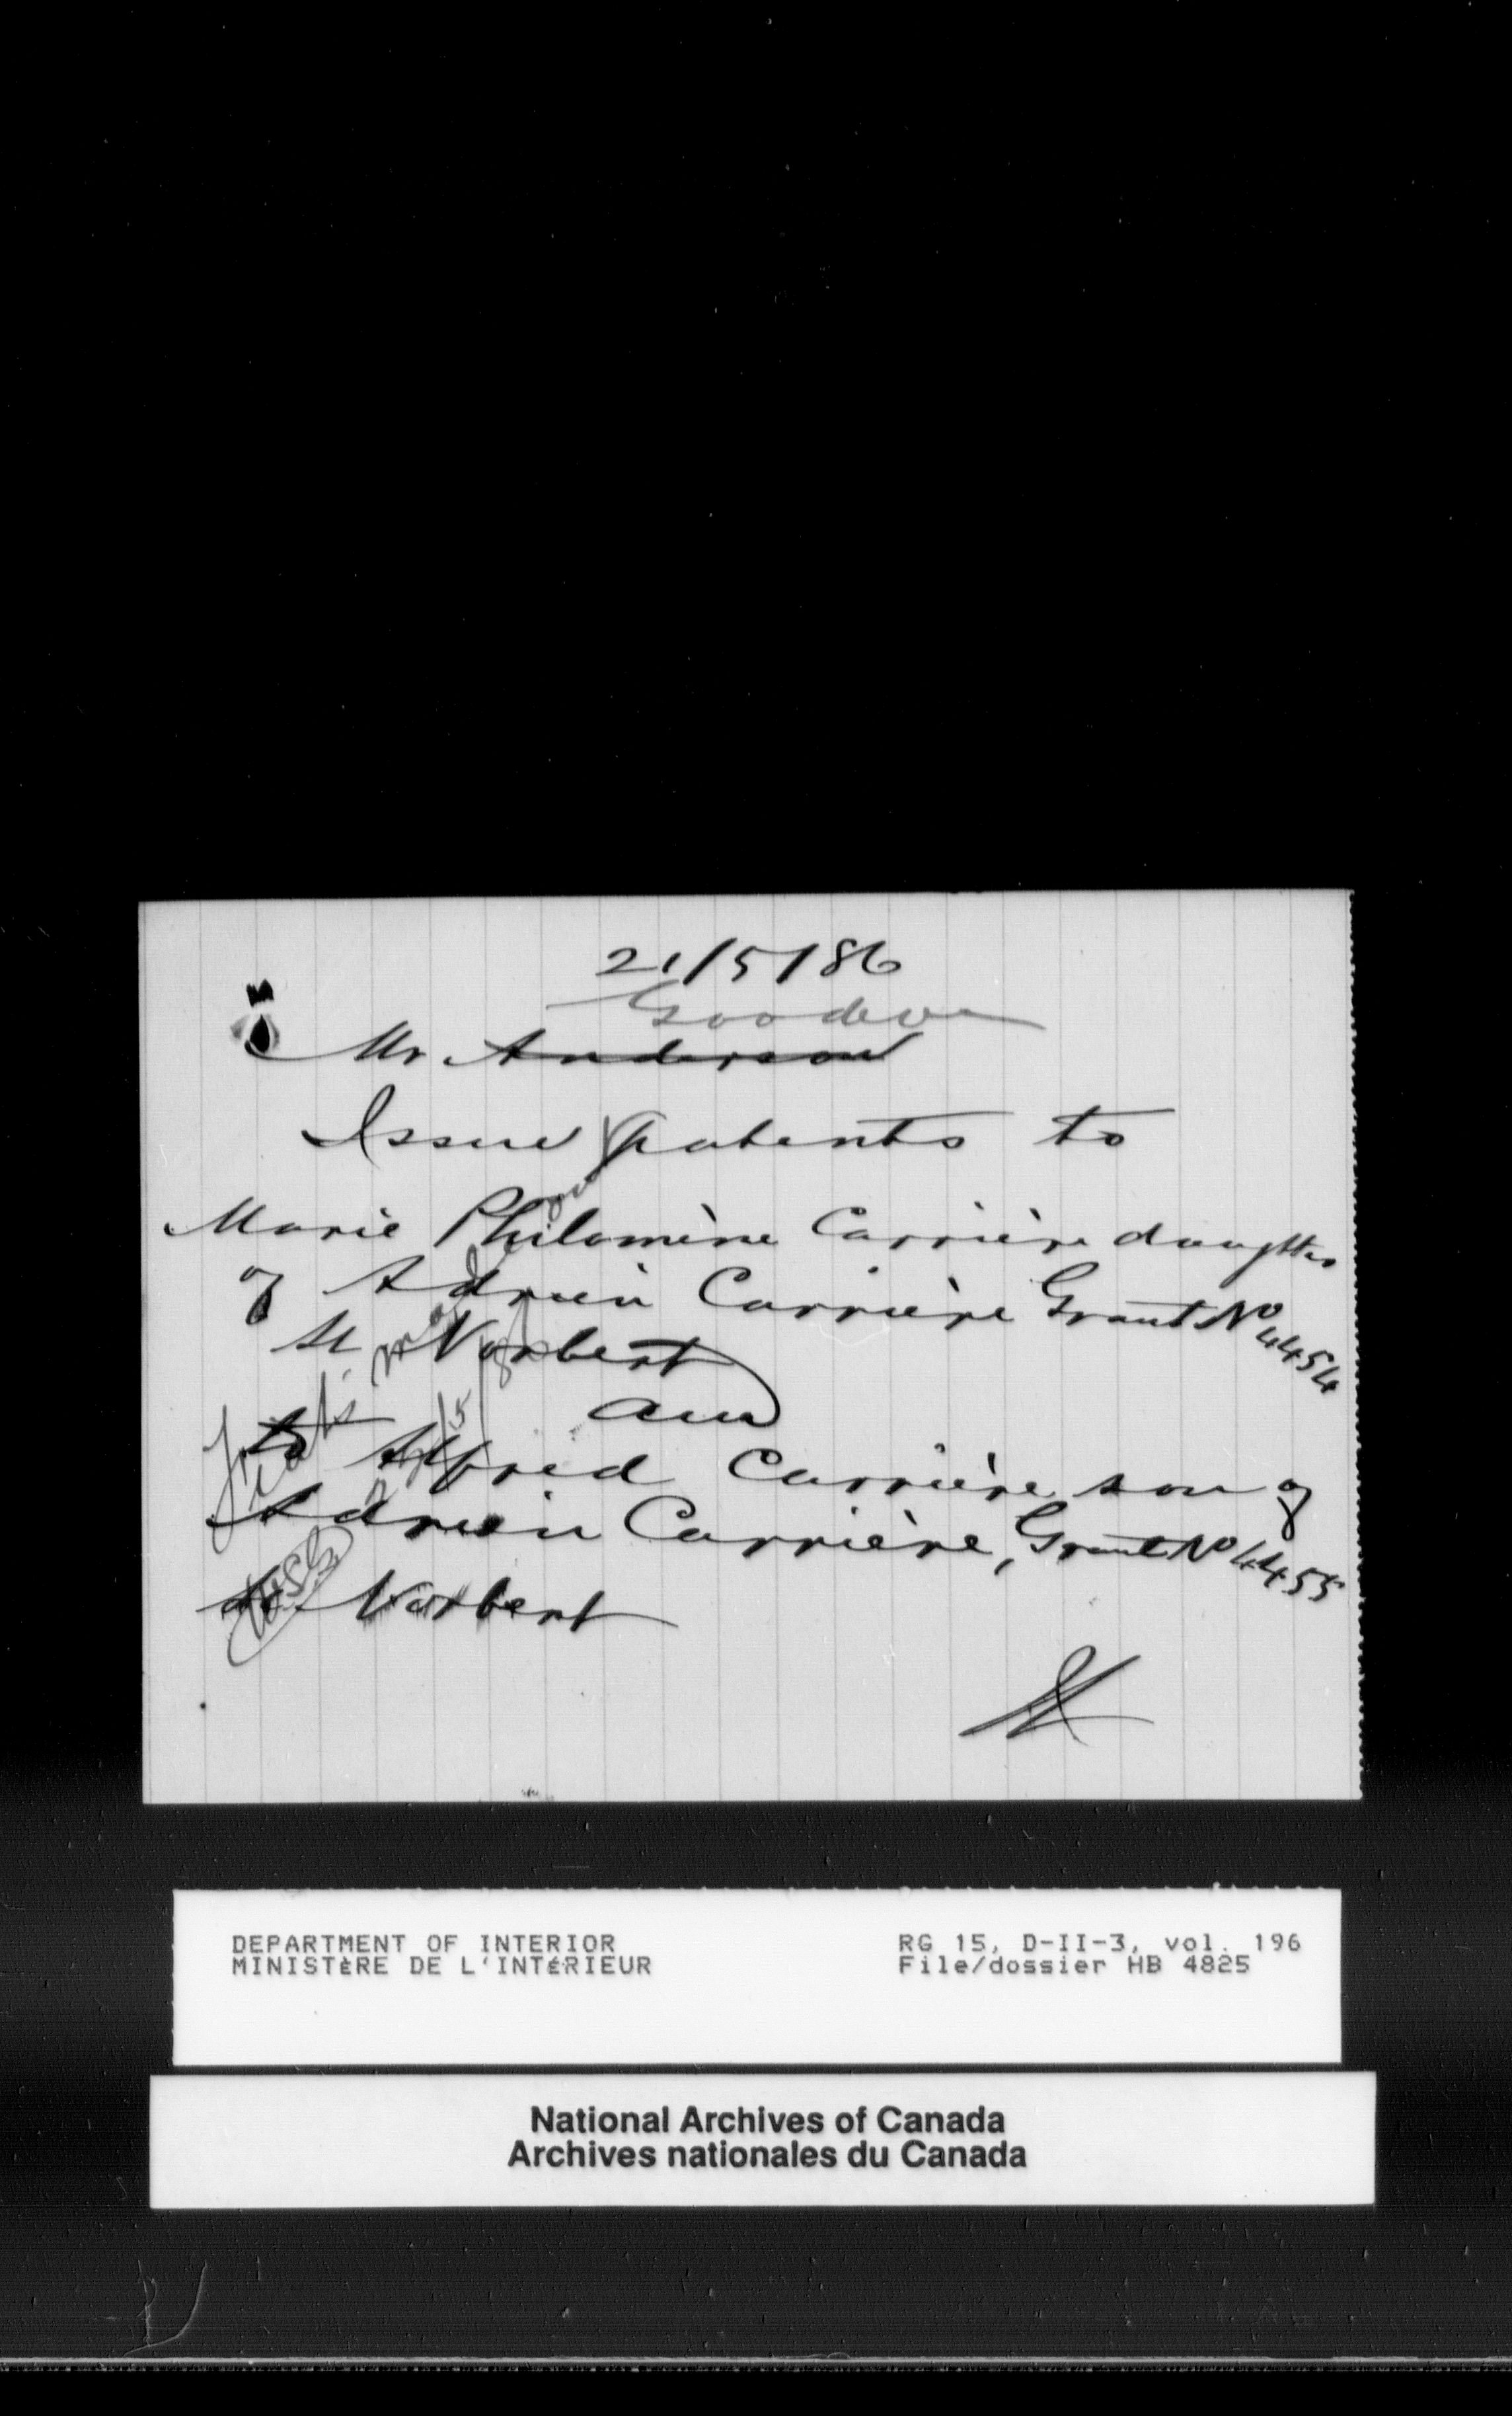 21/5/86
Goodeve
Mr. Anderson
Issue patents to
Marie Philomène Carrière daughter
of Adrien Carrière Grant No 4454
St Norbert
and
to Alfred Carrière son of
Adrien Carrière, Grant No 4455
St Norbert
DEPARTMENT OF INTERIOR
MINISTÈRE DE L'INTÉRIEUR
RG 15, D-II-3, vol. 196
File/dossier HB 4825
National Archives of Canada
Archives nationales du Canada